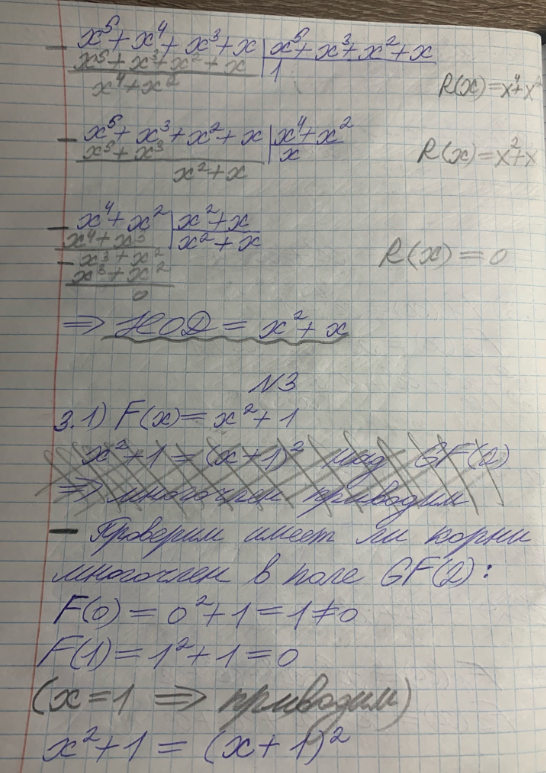 x⁵+x⁴+x³+x | x⁵+x³+x²+x
x⁵+x³+x²+x | 1
x⁴+x² R(x)=x⁴+x²
x⁵+x³+x²+x | x⁴+x²
x⁵+x³ | x R(x)=x²+x
x²+x
x⁴+x² | x²+x
x⁴+x³ | x²+x
x³+x² R(x)=0
x³+x²
0
⇒ НОД = x²+x
N3
3.1) F(x)=x²+1
x²+1=(x+1)² над GF(2)
⇒ многочлен приводим
– Проверим имеет ли корни
многочлен в поле GF(2):
F(0)=0²+1=1≠0
F(1)=1²+1=0
(x=1 ⇒ приводим)
x²+1=(x+1)²